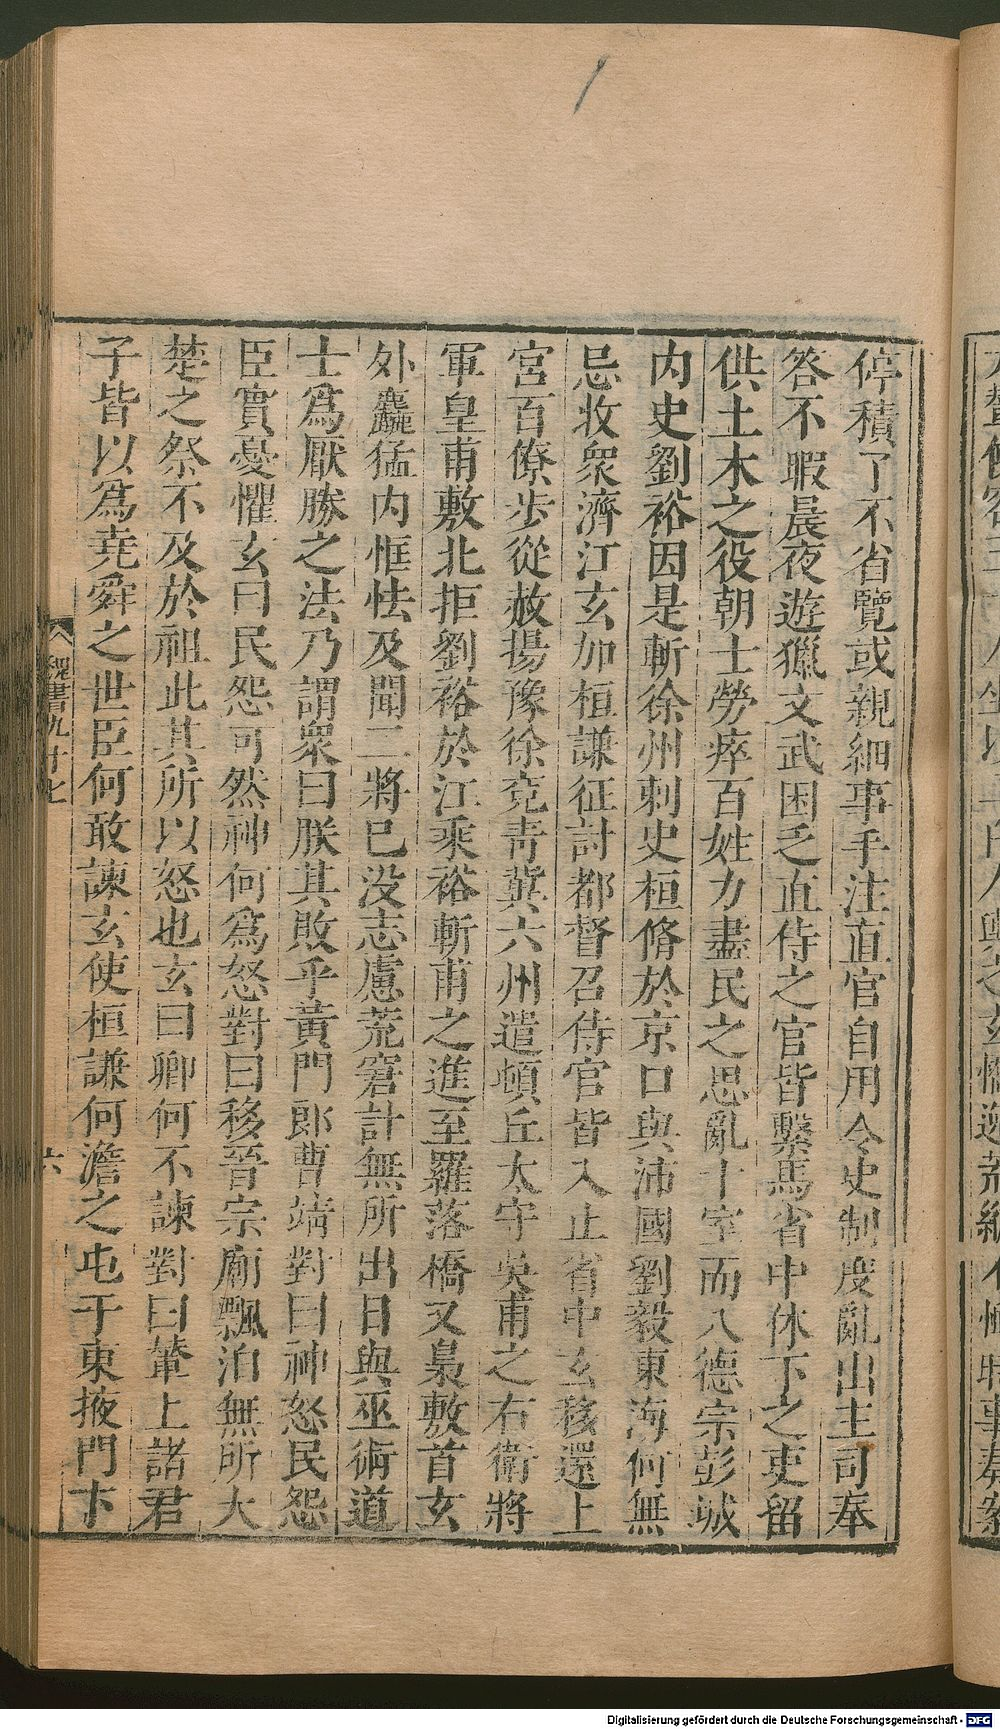 停積了不省覽或親細事手注直官自用令史制度亂出主司奉
答不暇晨夜遊獵文武困乏直侍之官皆繫馬省中休下之吏留
供土木之役朝士勞瘁百姓力盡民之思亂十室而八德宗彭城
内史劉裕因是斬徐州刺史桓脩於京口與沛國劉毅東海何無
忌收衆濟江玄加桓謙征討都督召侍官皆入止省中玄移還上
宮百僚步從赦揚豫徐兗青冀六州遣頓丘太守吳甫之右衛將
軍皇甫敷北拒劉裕於江乘裕斬甫之進至羅落橋又梟敷首玄
外麤猛内恇怯及聞二將已没志慮荒窘計無所出日與巫術道
士爲厭勝之法乃謂衆曰朕其敗乎黃門郎曹靖對曰神怒民怨
臣實憂懼玄曰民怨可然神何爲怒對曰移晉宗廟飄泊無所大
楚之祭不及於祖此其所以怒也玄曰卿何不諫對曰輦上諸君
子皆以爲堯舜之世臣何敢諫玄使桓謙何澹之屯于東掖門卞
魏書九十七
六
Digitalisierung gefördert durch die Deutsche Forschungsgemeinschaft - DFG